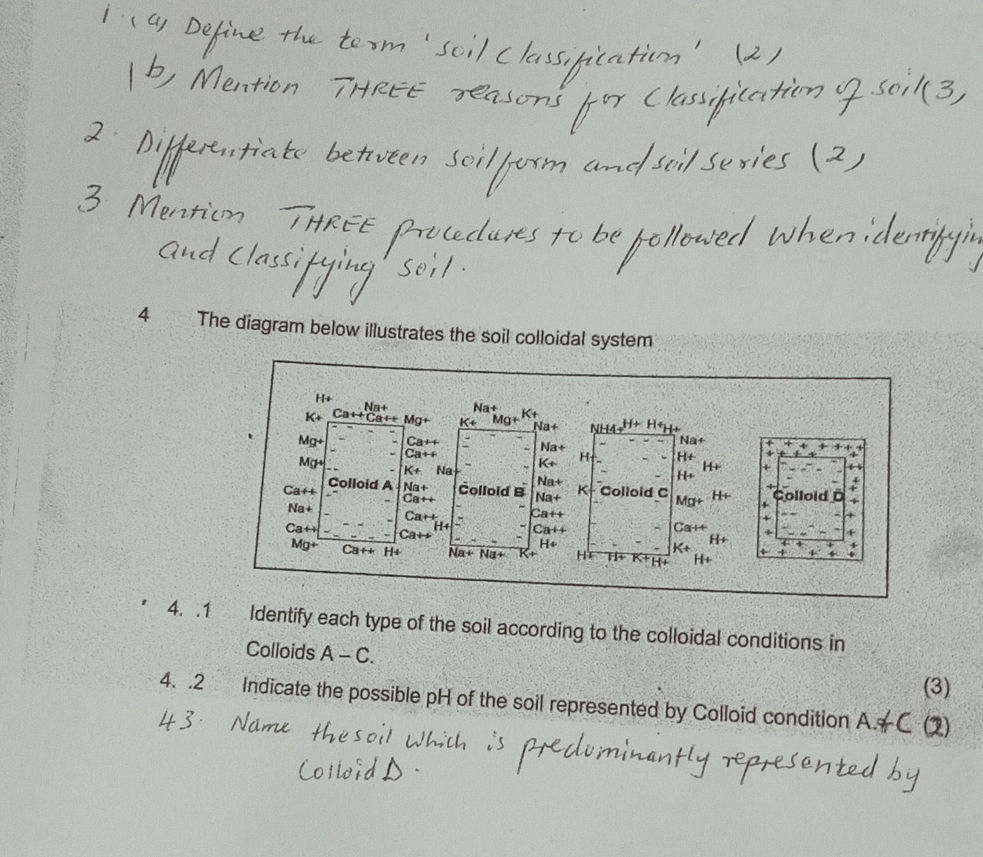 1. (a) Define the term 'soil classification' (2)
1 b) Mention THREE reasons for classification of soil (3)
2. Differentiate between soil form and soil series (2)
3 Mention THREE procedures to be followed when identifying
and classifying soil.
4 The diagram below illustrates the soil colloidal system
H+ Na+ Na+ K+
K+ Ca++ Ca++ Mg+ K+ Mg+ Na+ NH4+ H+ H+ H+
Mg+ Ca++ Na+ Na+
Mg+ Ca++ K+ H+ H+ H+
K+ Na+ Na+ H+
Ca++ Colloid A Na+ Colloid B Na+ K+ Colloid C Mg+ H+ Colloid D
Na+ Ca++ Ca++
Ca++ Ca++ H+ Ca++ Ca++ H+
Mg+ Ca++ H+ Ca++ Na+ Na+ K+ H+ H+ H+ K+ H+ K+ H+
4. .1 Identify each type of the soil according to the colloidal conditions in
Colloids A – C.
(3)
4. .2 Indicate the possible pH of the soil represented by Colloid condition A.+C (2)
43. Name the soil which is predominantly represented by
Colloid D.